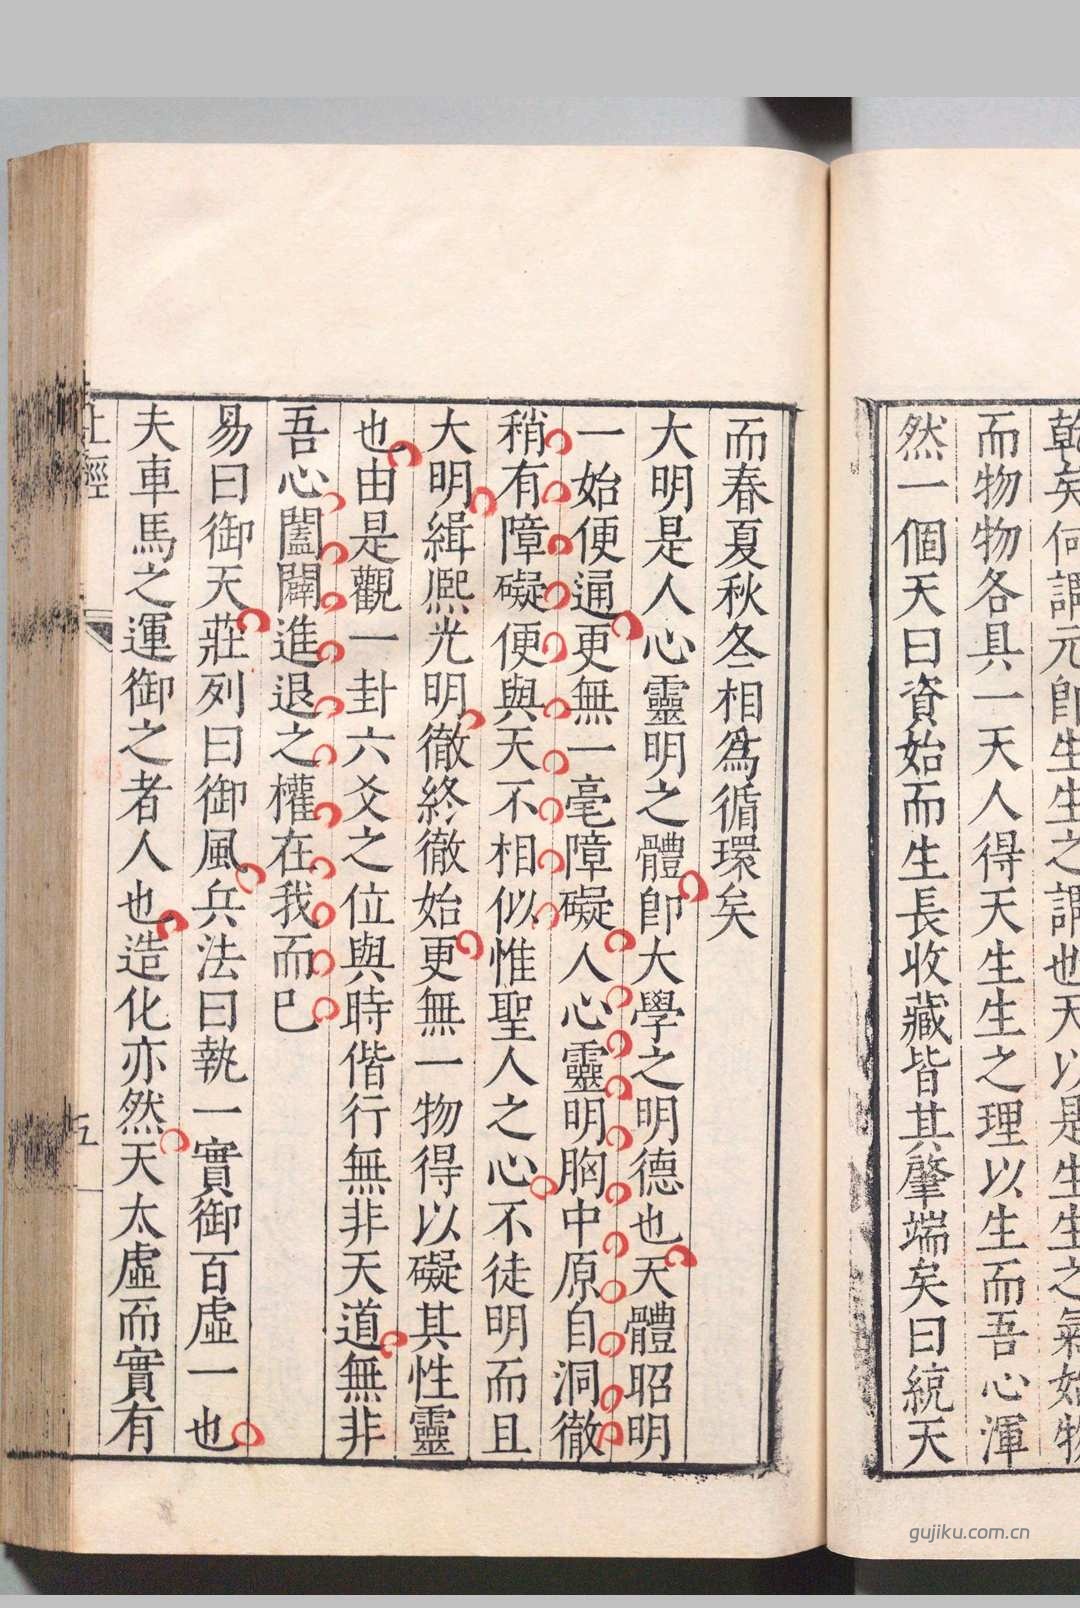 乾矣何謂元卽生生之謂也天以是生生之氣始物
而物物各具一天人得天生生之理以生而吾心渾
然一個天曰資始而生長收藏皆其肇端矣曰統天
而春夏秋冬相爲循環矣
大明是人心靈明之體卽大學之明德也天體昭明
一始便通更無一毫障礙人心靈明胸中原自洞徹
稍有障礙便與天不相似惟聖人之心不徒明而且
大明緝熈光明徹終徹始更無一物得以礙其性靈
也由是觀一卦六爻之位與時偕行無非天道無非
吾心闔闢進退之權在我而巳
易曰御天莊列曰御風兵法曰執一實御百虛一也
夫車馬之運御之者人也造化亦然天太虛而實有
上經
五
gujiku.com.cn